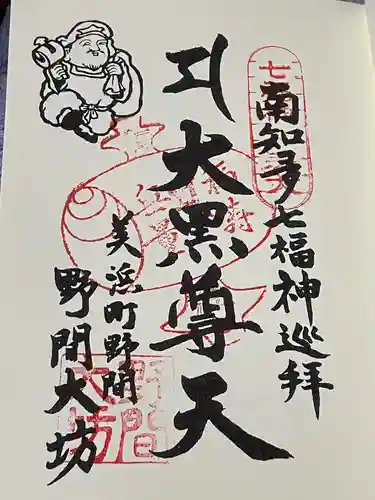 南知多七福神巡拝
大黒尊天
美浜町野間
野間大坊
野間
大坊